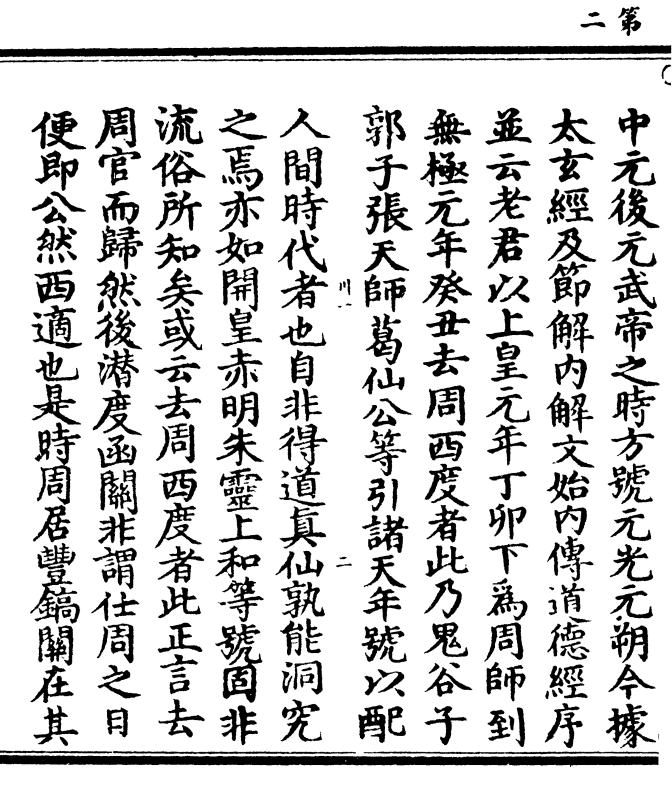 第二
中元後元武帝之時方號元光元朔今據
太玄經及節解內解文始內傳道德經序
並云老君以上皇元年丁卯下爲周師到
無極元年癸丑去周西度者此乃鬼谷子
郭子張天師葛仙公等引諸天年號以配
人間時代者也自非得道眞仙孰能洞究
之焉亦如開皇赤明朱靈上和等號固非
流俗所知矣或云去周西度者此正言去
周官而歸然後潜度函關非謂仕周之日
便即公然西適也是時周居豐鎬關在其